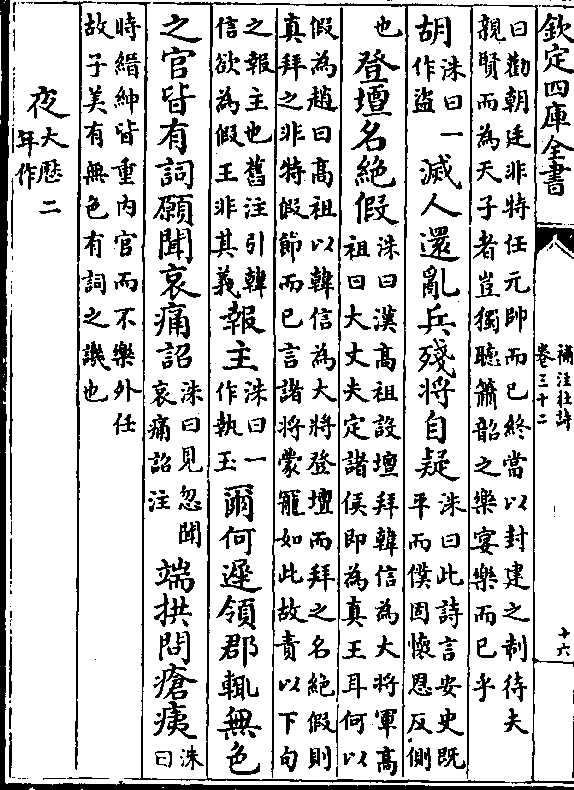 欽定四庫全書
補注杜詩
卷三十二
十六
曰勸朝廷非特任元帥而已終當以封建之制待夫
親賢而為天子者豈獨聴簫韶之樂宴樂而已乎
胡
洙曰一
作盜
滅人還亂兵殘將自疑
洙曰此詩言安史既
平而僕固懷恩反側
也
登壇名絶假
洙曰漢髙祖設壇拜韓信為大將軍髙
祖曰大丈夫定諸侯即為真王耳何以
假為趙曰髙祖以韓信為大將登壇而拜之名絶假則
真拜之非特假節而已言諸將蒙寵如此故責以下句
之報主也舊注引韓
信欲為假王非其義
報主
洙曰一
作執玉
爾何遲領郡輒無色
之官皆有詞願聞哀痛詔
洙曰見忽聞
哀痛詔注
端拱問瘡痍
洙
曰
時縉紳皆重内官而不樂外任
故子美有無色有詞之譏也
夜
大厯二
年作